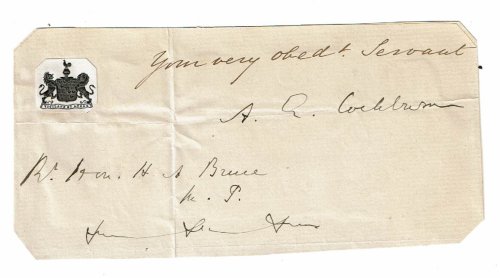 Your very obedt Servant
A. E. Cockburn
Rt. Hon. H A Bruce
M. P.